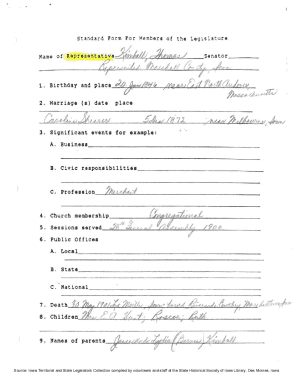 Standard Form For Members of the Legislature
Name of Representative Kimball, Thomas Senator
Represented Marshall County, Iowa
1. Birthday and place 24 June 1846 near East
Massachusetts
2. Marriage (s) date place
Caroline 5 Dec 1872 near Melbourne, Iowa
3. Significant events for example:
A. Business
B. Civic responsibilities
C. Profession Merchant
4. Church membership Congregational
5. Sessions served 28th General Assembly 1900
6. Public Offices
A. Local
B. State
C. National
7. Death 30 May 1901 Iowa buried Riverside Cemetery
8. Children Mrs. Roscoe, Ruth
9. Names of parents Lydia Kimball
Source: Iowa Territorial and State Legislators Collection compiled by volunteers and staff at the State Historical Society of Iowa Library, Des Moines, Iowa.